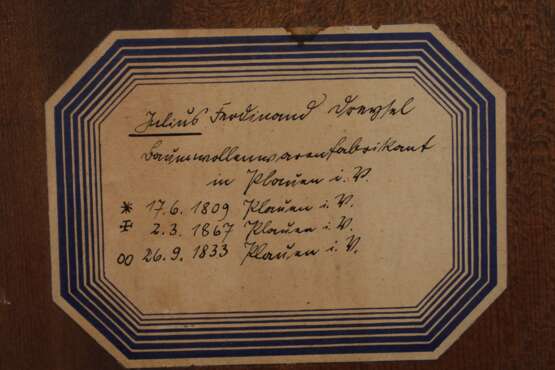 Julius Ferdinand Dreysel
Baumwollenwarenfabrikant
in Plauen i. V.
* 17.6. 1809 Plauen i. V.
✠ 2.3. 1867 Plauen i. V.
∞ 26.9. 1833 Plauen i. V.